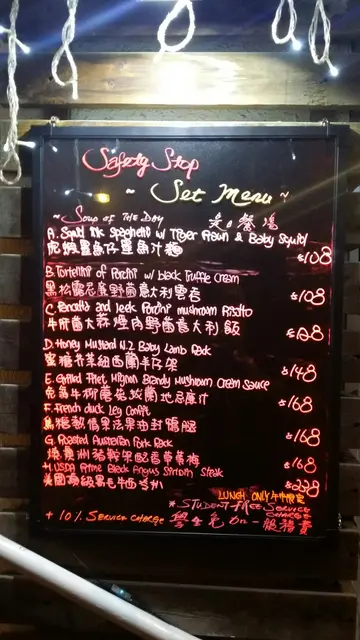 Safety Stop
~ Set Menu ~
~ Soup of The Day 是日餐湯
A. Squid Ink Spaghetti w/ Tiger Prawn & Baby Squid
虎蝦墨魚仔墨魚汁麵 $108
B. Tortellini of Porcini w/ black Truffle cream
黑松露忌廉野菌意大利雲吞 $108
C. Pancetta and leek Porcini mushroom Risotto
牛肝菌大蒜煙肉野菌意大利飯 $128
D. Honey Mustard N.Z Baby Lamb Rack
蜜糖芥茉紐西蘭羊仔架 $148
E. Grilled Filet Mignon Brandy Mushroom Cream Sauce
蘭地忌廉汁 $168
F. French duck Leg Confit
法果油封鴨腿 $168
G. Roasted Australian Pork Rack
燒澳洲豬鞍 $168
H. USDA Prime Black Angus Sirloin Steak
美國頂級黑毛牛西冷扒 $238
LUNCH ONLY 午市限定
* STUDENT FREE SERVICE CHARGE
+ 10% SERVICE CHARGE 學生免加一服務費